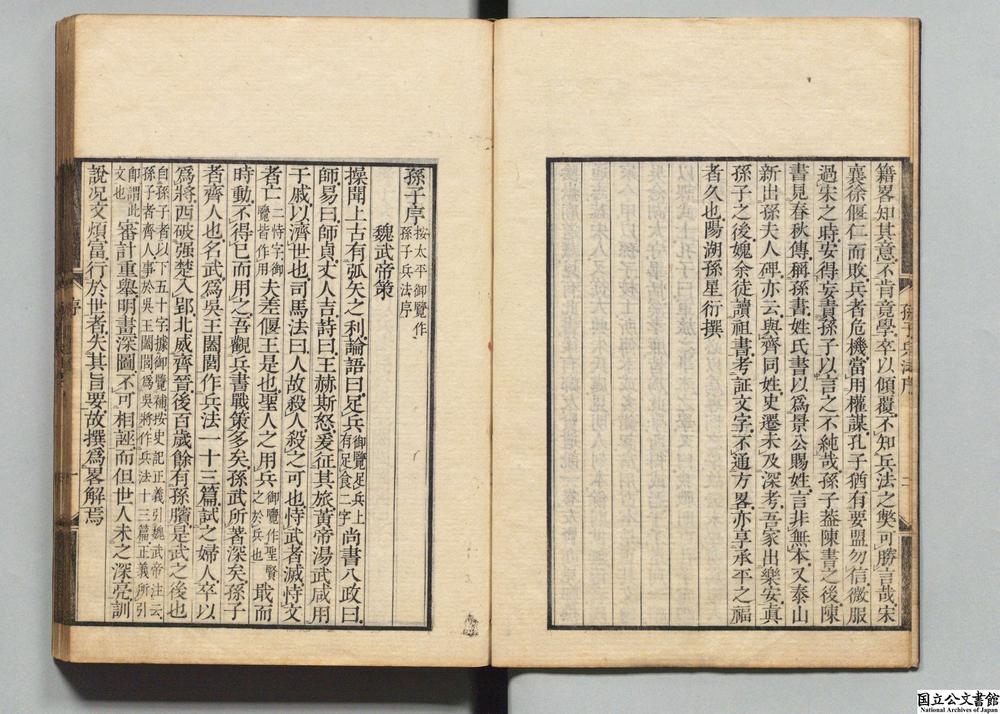 籍畧知其意不肯竟學卒以傾覆不知兵法之獘可勝言哉宋
襄徐偃仁而敗兵者危機當用權謀孔子猶有要盟勿信微服
過宋之時安得妄責孫子以言之不純哉孫子葢陳書之後陳
書見春秋傳稱孫書姓氏書以爲景公賜姓言非無本又泰山
新出孫夫人碑亦云與齊同姓史遷未及深考吾家出樂安眞
孫子之後媿余徒讀祖書考証文字不通方畧亦享承平之福
者久也陽湖孫星衍撰
孫子序按太平御覽作孫子兵法序
魏武帝策
操聞上古有弧矢之利論語曰足兵御覽足兵上有足食二字尚書八政曰
師易曰師貞丈人吉詩曰王赫斯怒爰征其旅黃帝湯武咸用
干戚以濟世也司馬法曰人故殺人殺之可也恃武者滅恃文
者亡二恃字御覽皆作用夫差偃王是也聖人之用兵御覽作聖賢之於兵也戢而
時動不得已而用之吾觀兵書戰策多矣孫武所著深矣孫子
者齊人也名武爲吳王闔閭作兵法一十三篇試之婦人卒以
爲將西破强楚入郢北威齊晉後百歲餘有孫臏是武之後也
自孫子者以下五十字據御覽補按史記正義引魏武帝注云孫子者齊人事於吳王闔閭爲吳將作兵法十三篇正義所引
卽謂此文也審計重舉明畫深圖不可相誣而但世人未之深亮訓
說况文煩富行於世者失其旨要故撰爲畧解焉
序
二
国立公文書館
National Archives of Japan